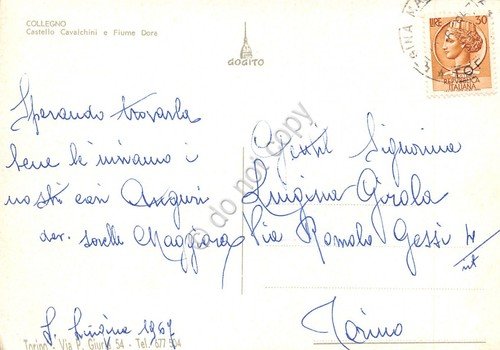 COLLEGNO
Castello Cavalchini e Fiume Dora
GOGITO
LIRE 30
ITALIANA
Sperando trovarla
bene le inviamo i
nostri cari Auguri
dev. sorelle Maggiora
Gent. Signorina
Luigina Girola
Via Romolo Gessi 4
int
Torino
S. Luigina 1967
Torino - Via P. Giuria 54 - Tel. 677 504
© do not copy